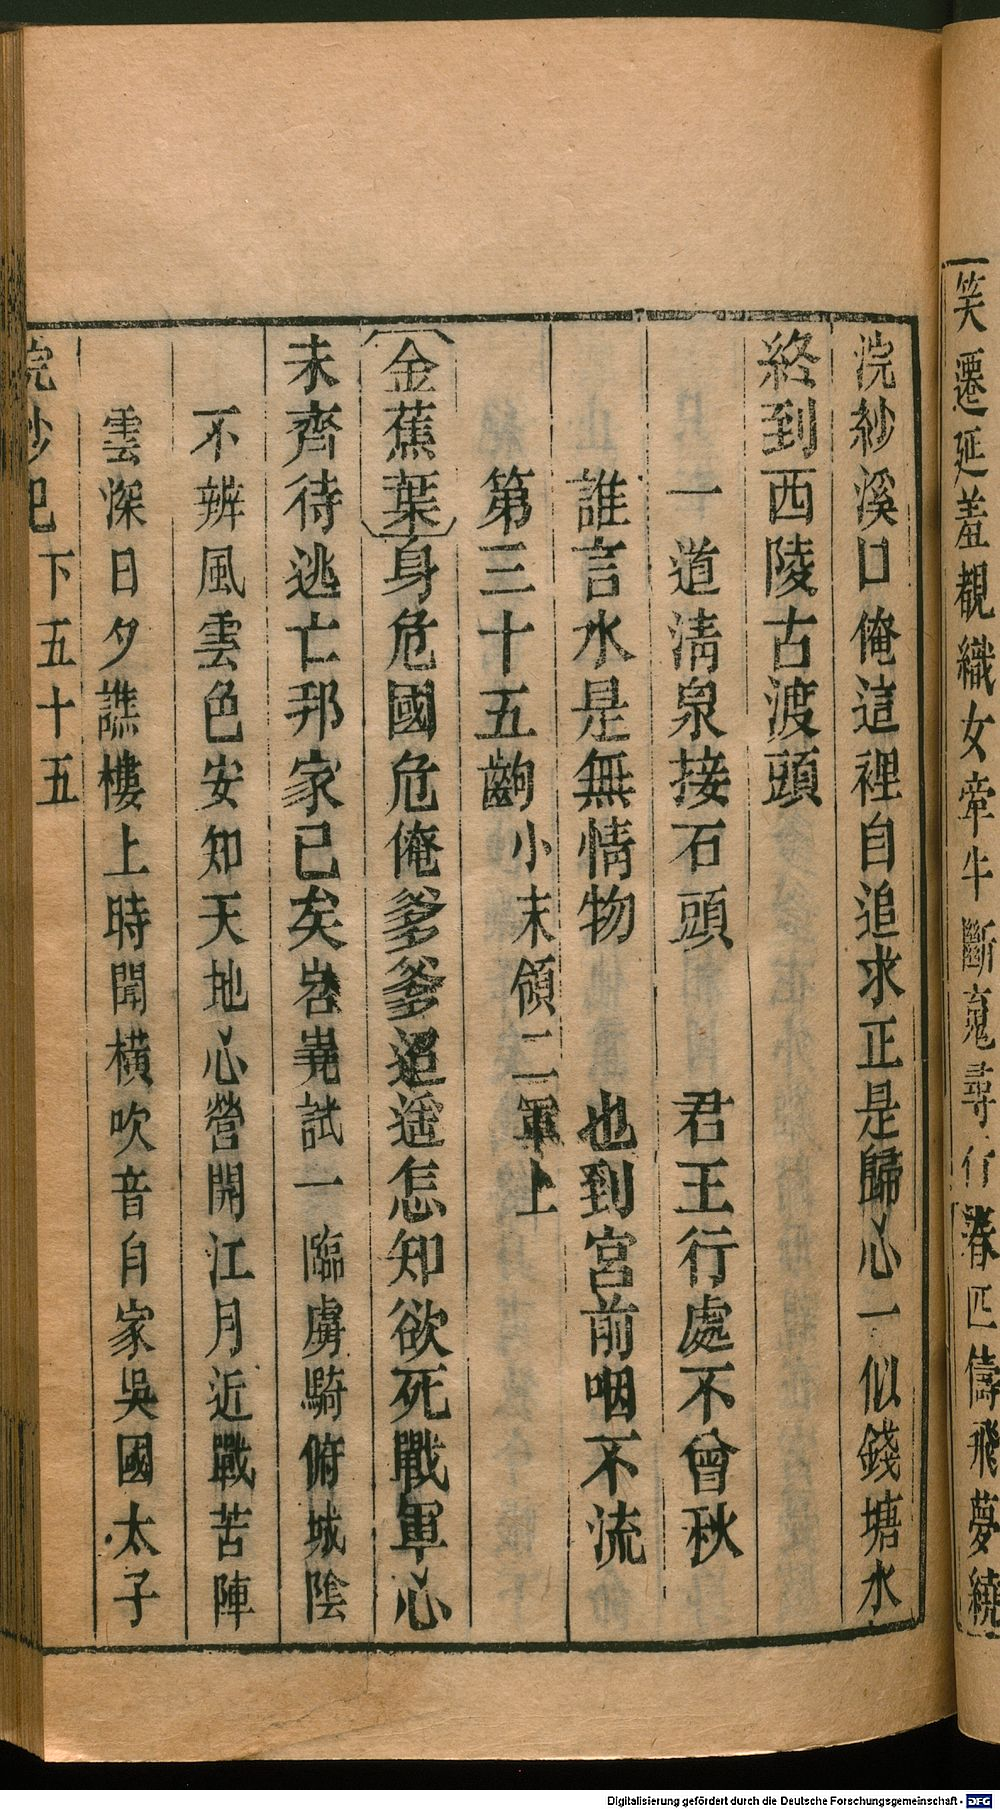 笑遷延羞覩織女牽牛斷䰟尋行春匹儔飛夢繞
浣紗溪口俺這裡自追求正是歸心一似錢塘水
終到西陵古渡頭
一道淸泉接石頭　君王行處不曾秋
誰言水是無情物　也到宮前咽不流
第三十五齣 小末領二軍上
金蕉葉 身危國危俺爹爹迢遥怎知欲死戰軍心
未齊待逃亡邦家已矣 岧嶤試一臨虜騎俯城陰
不辨風雲色安知天地心營開江月近戰苦陣
雲深日夕譙樓上時聞橫吹音自家吳國太子
浣紗记 下 五十五
Digitalisierung gefördert durch die Deutsche Forschungsgemeinschaft - DFG